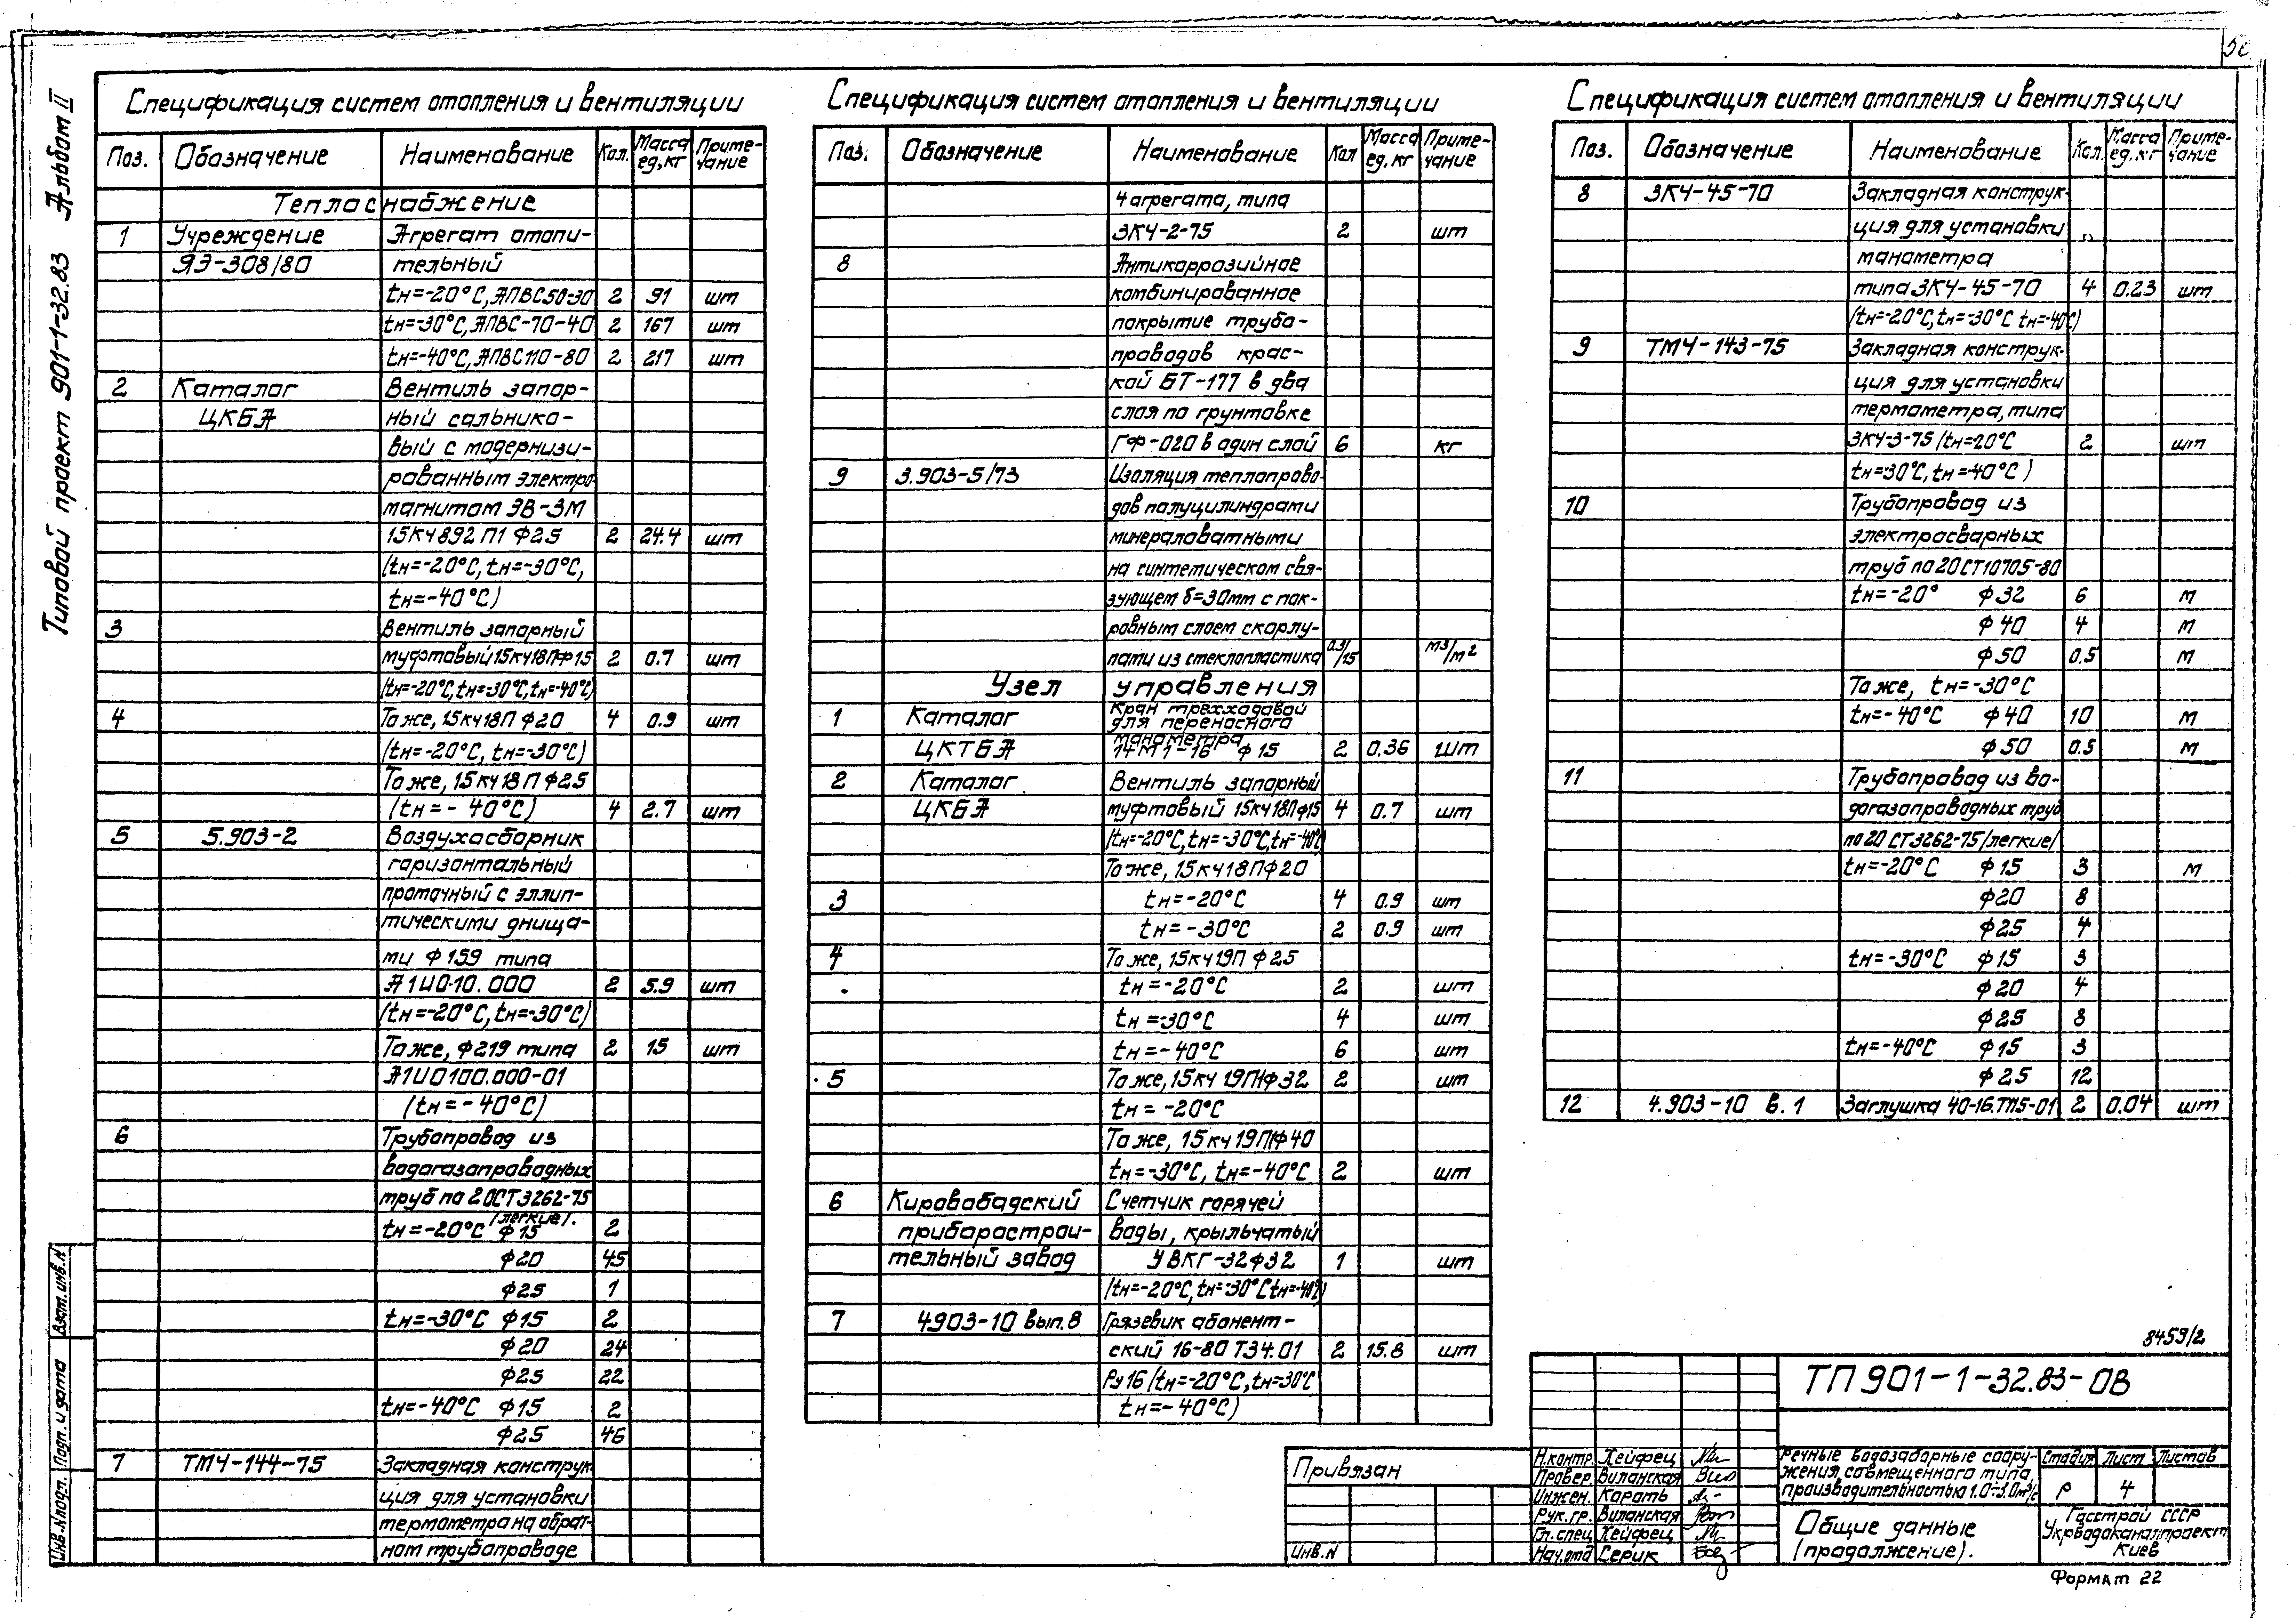 Типовой проект 901-1-32.83 Альбом II
Спецификация систем отопления и вентиляции
Поз. Обозначение Наименование Кол. Масса ед, кг Приме-чание
Теплоснабжение
1 Учреждение Агрегат отопи-
ЯЭ-308/80 тельный
tн=-20°С, АПВС50-30 2 91 шт
tн=-30°С, АПВС-70-40 2 167 шт
tн=-40°С, АПВС110-80 2 217 шт
2 Каталог Вентиль запор-
ЦКБА ный сальнико-
вый с модернизи-
рованным электро
магнитом ЭВ-3М
15кч892 П1 ф25 2 24.4 шт
(tн=-20°С, tн=-30°С,
tн=-40°С)
3 Вентиль запорный
муфтовый 15кч18Пф15 2 0.7 шт
(tн=-20°С, tн=-30°С, tн=-40°С)
4 То же, 15кч18П ф20 4 0.9 шт
(tн=-20°С, tн=-30°С)
То же, 15кч18П ф25
(tн=-40°С) 4 2.7 шт
5 5.903-2 Воздухосборник
горизонтальный
проточный с эллип-
тическими днища-
ми ф159 типа
А1И0·10.000 2 5.9 шт
(tн=-20°С, tн=-30°С)
То же, ф219 типа 2 15 шт
А1И0100.000-01
(tн=-40°С)
6 Трубопровод из
водогазопроводных
труб по ГОСТ3262-75
/легкие/.
tн=-20°С ф15 2
ф20 45
ф25 1
tн=-30°С ф15 2
ф20 24
ф25 22
tн=-40°С ф15 2
ф25 46
7 ТМ4-144-75 Закладная конструк
ция для установки
термометра на обрат-
ном трубопроводе
Спецификация систем отопления и вентиляции
Поз. Обозначение Наименование Кол Масса ед, кг Приме-чание
4 агрегата, типа
ЗК4-2-75 2 шт
8 Антикоррозийное
комбинированное
покрытие трубо-
проводов крас-
кой БТ-177 в два
слоя по грунтовке
ГФ-020 в один слой 6 кг
9 3.903-5/73 Изоляция теплопрово-
дов полуцилиндрами
минераловатными
на синтетическом свя-
зующем δ=30мм с пок-
ровным слоем скорлу-
пами из стеклопластика 0.3/15 м3/м2
Узел управления
1 Каталог Кран трехходовой
для переносного
манометра
ЦКТБА 14М1-16 ф15 2 0.36 шт
2 Каталог Вентиль запорный
ЦКБА муфтовый 15кч18Пф15 4 0.7 шт
(tн=-20°С, tн=-30°С, tн=-40°С
То же, 15кч18Пф20
3 tн=-20°С 4 0.9 шт
tн=-30°С 2 0.9 шт
4 То же, 15кч19П ф25
tн=-20°С 2 шт
tн=30°С 4 шт
tн=-40°С 6 шт
5 То же, 15кч 19П1ф32 2 шт
tн=-20°С
То же, 15кч19П1ф40
tн=-30°С, tн=-40°С 2 шт
6 Кировабадский Счетчик горячей
приборострои- воды, крыльчатый
тельный завод УВКГ-32ф32 1 шт
(tн=-20°С, tн=-30°С tн=-40°С)
7 4903-10 вып. 8 Грязевик абонент-
ский 16-80 Т34.01 2 15.8 шт
Ру16 (tн=-20°С, tн=30°С
tн=-40°С)
Спецификация систем отопления и вентиляции
Поз. Обозначение Наименование Кол. Масса ед, кг Приме-чание
8 ЗК4-45-70 Закладная конструк-
ция для установки
манометра
типа ЗК4-45-70 4 0.23 шт
(tн=-20°С, tн=-30°С tн=-40°С)
9 ТМ4-143-75 Закладная конструк-
ция для установки
термометра, типа
ЗК4-3-75 (tн=20°С 2 шт
tн=30°С, tн=-40°С)
10 Трубопровод из
электросварных
труб по ГОСТ10705-80
tн=-20° ф32 6 м
ф40 4 м
ф50 0.5 м
То же, tн=-30°С
tн=-40°С ф40 10 м
ф50 0.5 м
11 Трубопровод из во-
догазопроводных труб
по ГОСТ3262-75/легкие/
tн=-20°С ф15 3 м
ф20 8
ф25 4
tн=-30°С ф15 3
ф20 4
ф25 8
tн=-40°С ф15 3
ф25 12
12 4.903-10 в.1 Заглушка 40-16.ТМ5-01 2 0.04 шт
8459/2
ТП 901-1-32.83-ОВ
Привязан
Инв.N
Н.контр. Хейфец
Провер. Виланская
Инжен. Короть
Рук.гр. Виланская
Гл.спец Хейфец
Нач.отд Серик
Речные водозаборные соору-
жения совмещенного типа,
производительностью 1.0÷3.0м³/с
Стадия Лист Листов
Р 4
Общие данные
(продолжение).
Госстрой СССР
Укрводоканалпроект
Киев
Формат 22
Взам.инв.N
Подп. и дата
Инв.Nподл.